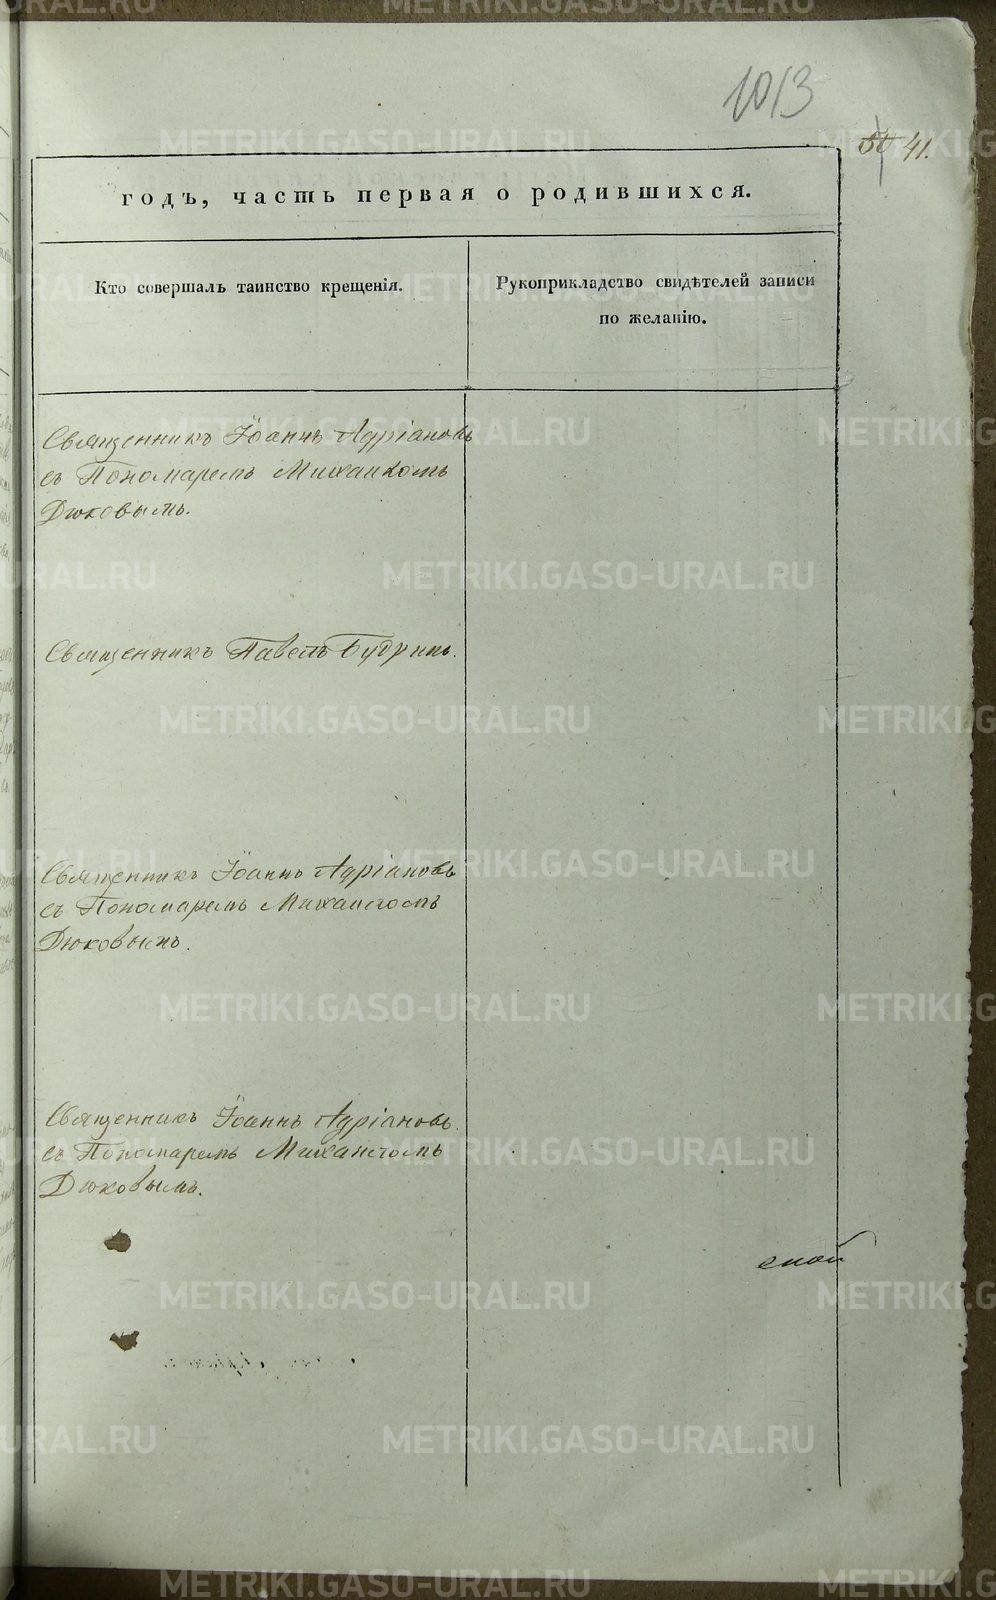 1013
41.
годъ, часть первая о родившихся.
Кто совершалъ таинство крещенія.
Рукоприкладство свидѣтелей записи
по желанію.
Священникъ Іоаннъ Адріановъ
съ Пономаремъ Михаиломъ
Дюковымъ.
Священникъ Павелъ Будринъ.
Священникъ Іоаннъ Адріановъ
съ Пономаремъ Михаиломъ
Дюковымъ.
Священникъ Іоаннъ Адріановъ.
съ Пономаремъ Михаиломъ
Дюковымъ.
ской
METRIKI.GASO-URAL.RU